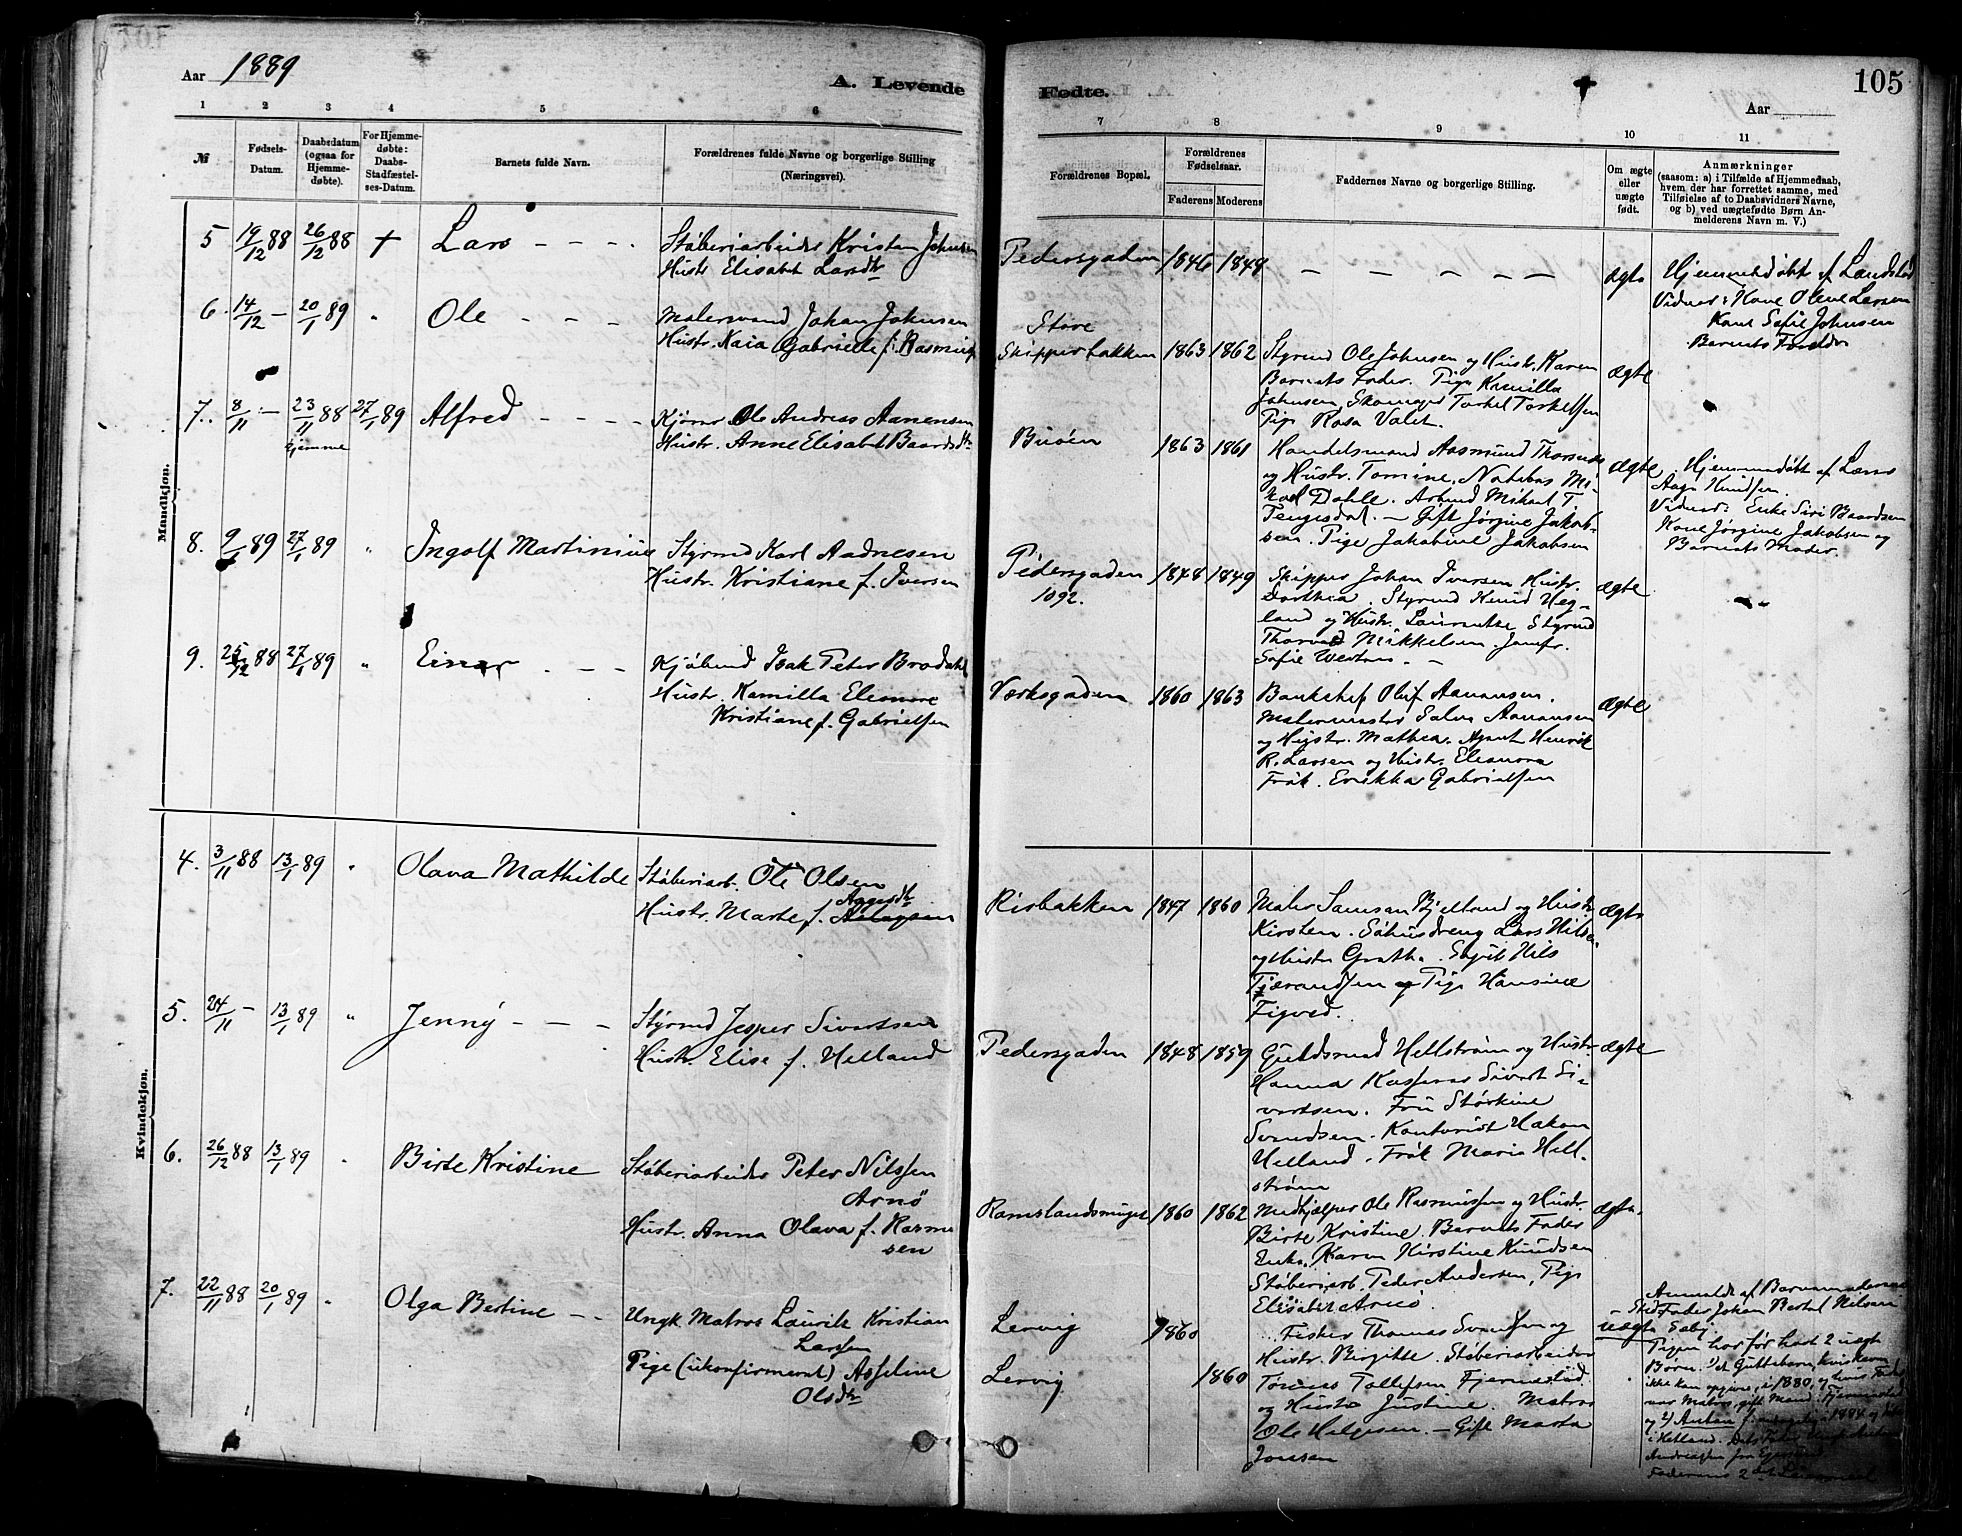 Aar 1889
A. Levende
1 2 3 4 5 6
№
Fødsels-Datum.
Daabsdatum (ogsaa for Hjemmedøbte).
For Hjemmedøbte: Daabs-Stadfæstelses-Datum.
Barnets fulde Navn.
Forældrenes fulde Navne og borgerlige Stilling (Næringsvei).
Mandkjøn.
5 19/12 88 26/12 88 + Lars - - - Støberiarbeider Kristen Johnsen
Hustr Elisabet Larsdtr
6. 14/12 - 20/1 89 " Ole - - - Malersvend Johan Johnsen
Hustr. Kaia Gabrielle f. Rasmus
7. 8/11 - 23/11 88 27/1 89 Alfred - - - Kjører Ole Andreas Aanensen
hjemme Hustr. Anne Elisabet Baardsdtr
8. 9/ 89 27/1 89 " Ingolf Martinius Styrmd Karl Aadnesen
Hustr. Kristiane f. Iversen
9. 25/12 88 27/1 89 " Einar - - - Kjøbmd Isak Peter Brodahl
Hustr. Kamilla Elenore
Kristiane f. Gabrielsen
Kvindekjøn.
4. 3/11 88 13/1 89 " Olava Mathilde Støberiarb. Ole Olsen
Aagesdtr
Hustr. Marte f.
5. 24/11 - 13/1 89 " Jenny - - - Styrmd Jesper Sivertsen
Hustr. Elise f. Helland
6. 26/12 88 13/1 89 " Birte Kristine Støberiarbeider Peter Nilssen
Arnø
Hustr. Anna Olava f. Rasmus
sen
7. 22/11 88 20/1 89 " Olga Bertine - - Ungk. Matros Laurits Kristian
Larsen
Pige (ukonfirmeret) Asseline
Olsdtr
Fødte.
105
Aar
7 8 9 10 11
Forældrenes Bopæl.
Forældrenes Fødselsaar.
Faderens Moderens
Faddernes Navne og borgerlige Stilling.
Om ægte eller uægte født.
Anmærkninger
(saasom: a) i Tilfælde af Hjemmedaab,
hvem der har forrettet samme, med
Tilføielse af to Daabsvidners Navne,
og b) ved uægtefødte Børn An-
melderens Navn m. V.)
Pedersgaden 1846 1849 - - - - - ægte Hjemmedøbt af Landstad
Vidner: Kone Olene Larsen
Kone Sofie Johnsen
Barnets Forældre
Store
Skipperbakken 1863 1862 Styrmd Ole Johnsen og Hustr. Karen ægte
Barnets Fader. Pige Kamilla
Johnsen Skomager Torkel Torkelsen
Pige Rosa Valet.
Buøen 1863 1861 Handelsmand Aasmund Thorsen ægte Hjemmedøbt af Lærer
og Hustr. Tomine. Aage Knudsen.
Dahle. Arbmd Mikael T. Vidner: Enke Siri Baardsen
Tengesdal. - Gift Jørgine Jakob- Kone Jørgine Jakobsen og
sen. Pige Jakobine Jakobsen Barnets Moder.
Pedersgaden 1848 1849 Skipper Johan Iversen Hustr. ægte
1092. Dorthea. Styrmd Knud Heg-
land og Hustr. Laurentze Styrmd
Thorvald Mikkelsen. Jomfr.
Sofie -
Værksgaden 1860 1863 Bankchef Oluf Aanensen. ægte
Malermester Salve Aanensen
og Hustr. Mathea. Agent Henrik
R. Larsen og Hustr. Eleanora
Frøk. Erikka Gabrielsen
Risbakken 1847 1860 Maler Samson Bjelland og Hustr. ægte
Kirsten. Lars Nilsen
og Hustr Nils
Tjerandsen og Pige Hansine
Figved.
Pedersgaden 1848 1859 Guldsmed Hellstrøm og Hustr. ægte
Hanna Kasserer Sivert Si-
vertsen. Fru Størkine
Svendsen. Kontorist Hakon
Helland. Frøk Maria Hell-
strøm
Ramslandsmuget 1860 1862 Medhjælper Ole Rasmussen og Hustr. ægte.
Birte Kristine. Barnets Fader
Enke Karen Kirstine Knudsen
Støberiarb. Peder Andersen, Pige
Elisabet Arnø.
Lervig 1860 Fisker Thomas Svendsen og uægte Anmeldt af Barnemoderens
Hustr. Birgitte. Støberiarbeider Stedfader Johan Bertel Nilsen
Lervig 1860 Tønnes Tollefsen Fjermestad
og Hustr Justine. Matros
Ole Helgesen. - Gift Marta
Jonsen
Pigen har før havt 2 uægte
Børn.